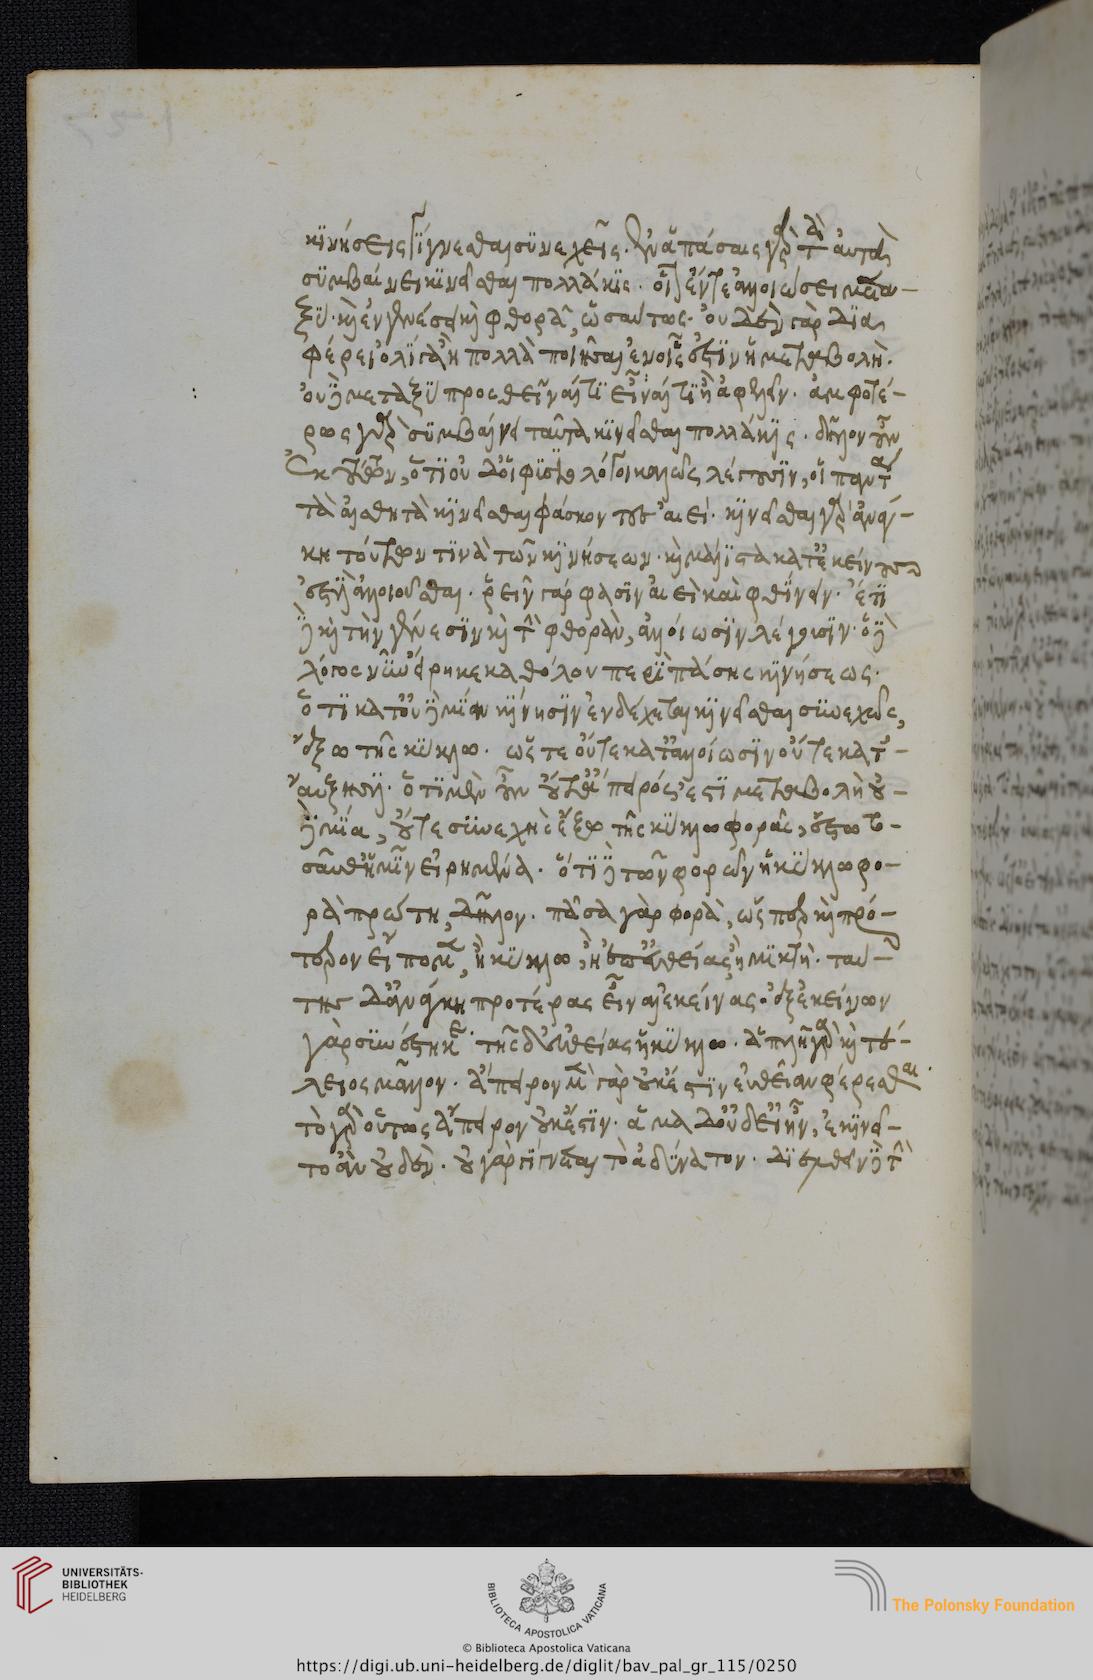 κινήσεις γίγνεσθαι συνεχεῖς. ἐν ἁπάσαις γὰρ τὰ αὐτὰ
συμβαίνει κινεῖσθαι πολλάκις. οἷον ἔν τε ἀλλοιώσει μετα-
ξύ. καὶ ἐν γενέσει καὶ φθορᾷ, ὡσαύτως. οὐδὲν γὰρ δια
φέρει ὀλίγα ἢ πολλὰ ποιῆσαι ἐν οἷς ἐστὶν ἡ μεταβολή.
οὐδὲ μεταξὺ προσθεῖναί τι εἶναί τι ἢ ἀφελεῖν. ἀμφοτέ-
ρως γὰρ συμβαίνει ταῦτα κινεῖσθαι πολλάκις. δῆλον οὖν
ἐκ τούτων, ὅτι οὐδ' οἱ φυσιολόγοι καλῶς λέγουσιν, οἱ παντα
τὰ αἰσθητὰ κινεῖσθαι φάσκοντες ἀεί. κινεῖσθαι γὰρ ἀνάγ-
κη τούτων τινὰ τῶν κινήσεων. καὶ μάλιστα κατ' ἐκείνους
ἐστὶν ἀλλοιοῦσθαι. ῥεῖν γάρ φασιν ἀεὶ καὶ φθίνειν. ἔτι
δὲ καὶ τὴν γένεσιν καὶ τὴν φθορὰν, ἀλλοίωσιν λέγουσιν. ὁ δὲ
λόγος νῦν εἴρηκε καθόλου περὶ πάσης κινήσεως.
ὅτι κατ' οὐδεμίαν κίνησιν ἐνδέχεται κινεῖσθαι συνεχῶς,
ἔξω τῆς κύκλω. ὥστε οὔτε κατ' ἀλλοίωσιν οὔτε κατ' -
αὔξησιν. ὅτι μὲν οὖν οὔτ' ἄπειρός ἐστι μεταβολὴ οὐ-
δεμία, οὔτε συνεχὴς ἔξω τῆς κύκλω φορᾶς, ἔστω το-
σαῦθ' ἡμῖν εἰρημένα. ὅτι δὲ τῶν φορῶν ἡ κύκλω φο-
ρὰ πρώτη, δῆλον. πᾶσα γὰρ φορὰ, ὥσπερ καὶ πρό-
τερον εἴπομεν, ἢ κύκλω, ἢ ἐπ' εὐθείας ἢ μικτή. ταύ-
της δ' ἀνάγκη προτέρας εἶναι ἐκείνας. ἐξ ἐκείνων
γὰρ συνέστηκεν. τῆς δ' εὐθείας ἡ κύκλω. ἁπλῆ γὰρ καὶ τέ-
λειος μᾶλλον. ἄπειρον μὲν γὰρ οὐκ ἔστιν εὐθεῖαν φέρεσθαι.
τὸ γὰρ οὕτως ἄπειρον οὐκ ἔστιν. ἅμα δ' οὐδ' εἰ ἦν, ἐκινεῖ-
το ἂν οὐδέν. οὐ γὰρ γίγνεται τὸ ἀδύνατον. διελθεῖν δὲ τὴν
UNIVERSITÄTS-
BIBLIOTHEK
HEIDELBERG
BIBLIOTECA APOSTOLICA VATICANA
The Polonsky Foundation
© Biblioteca Apostolica Vaticana
https://digi.ub.uni-heidelberg.de/diglit/bav_pal_gr_115/0250